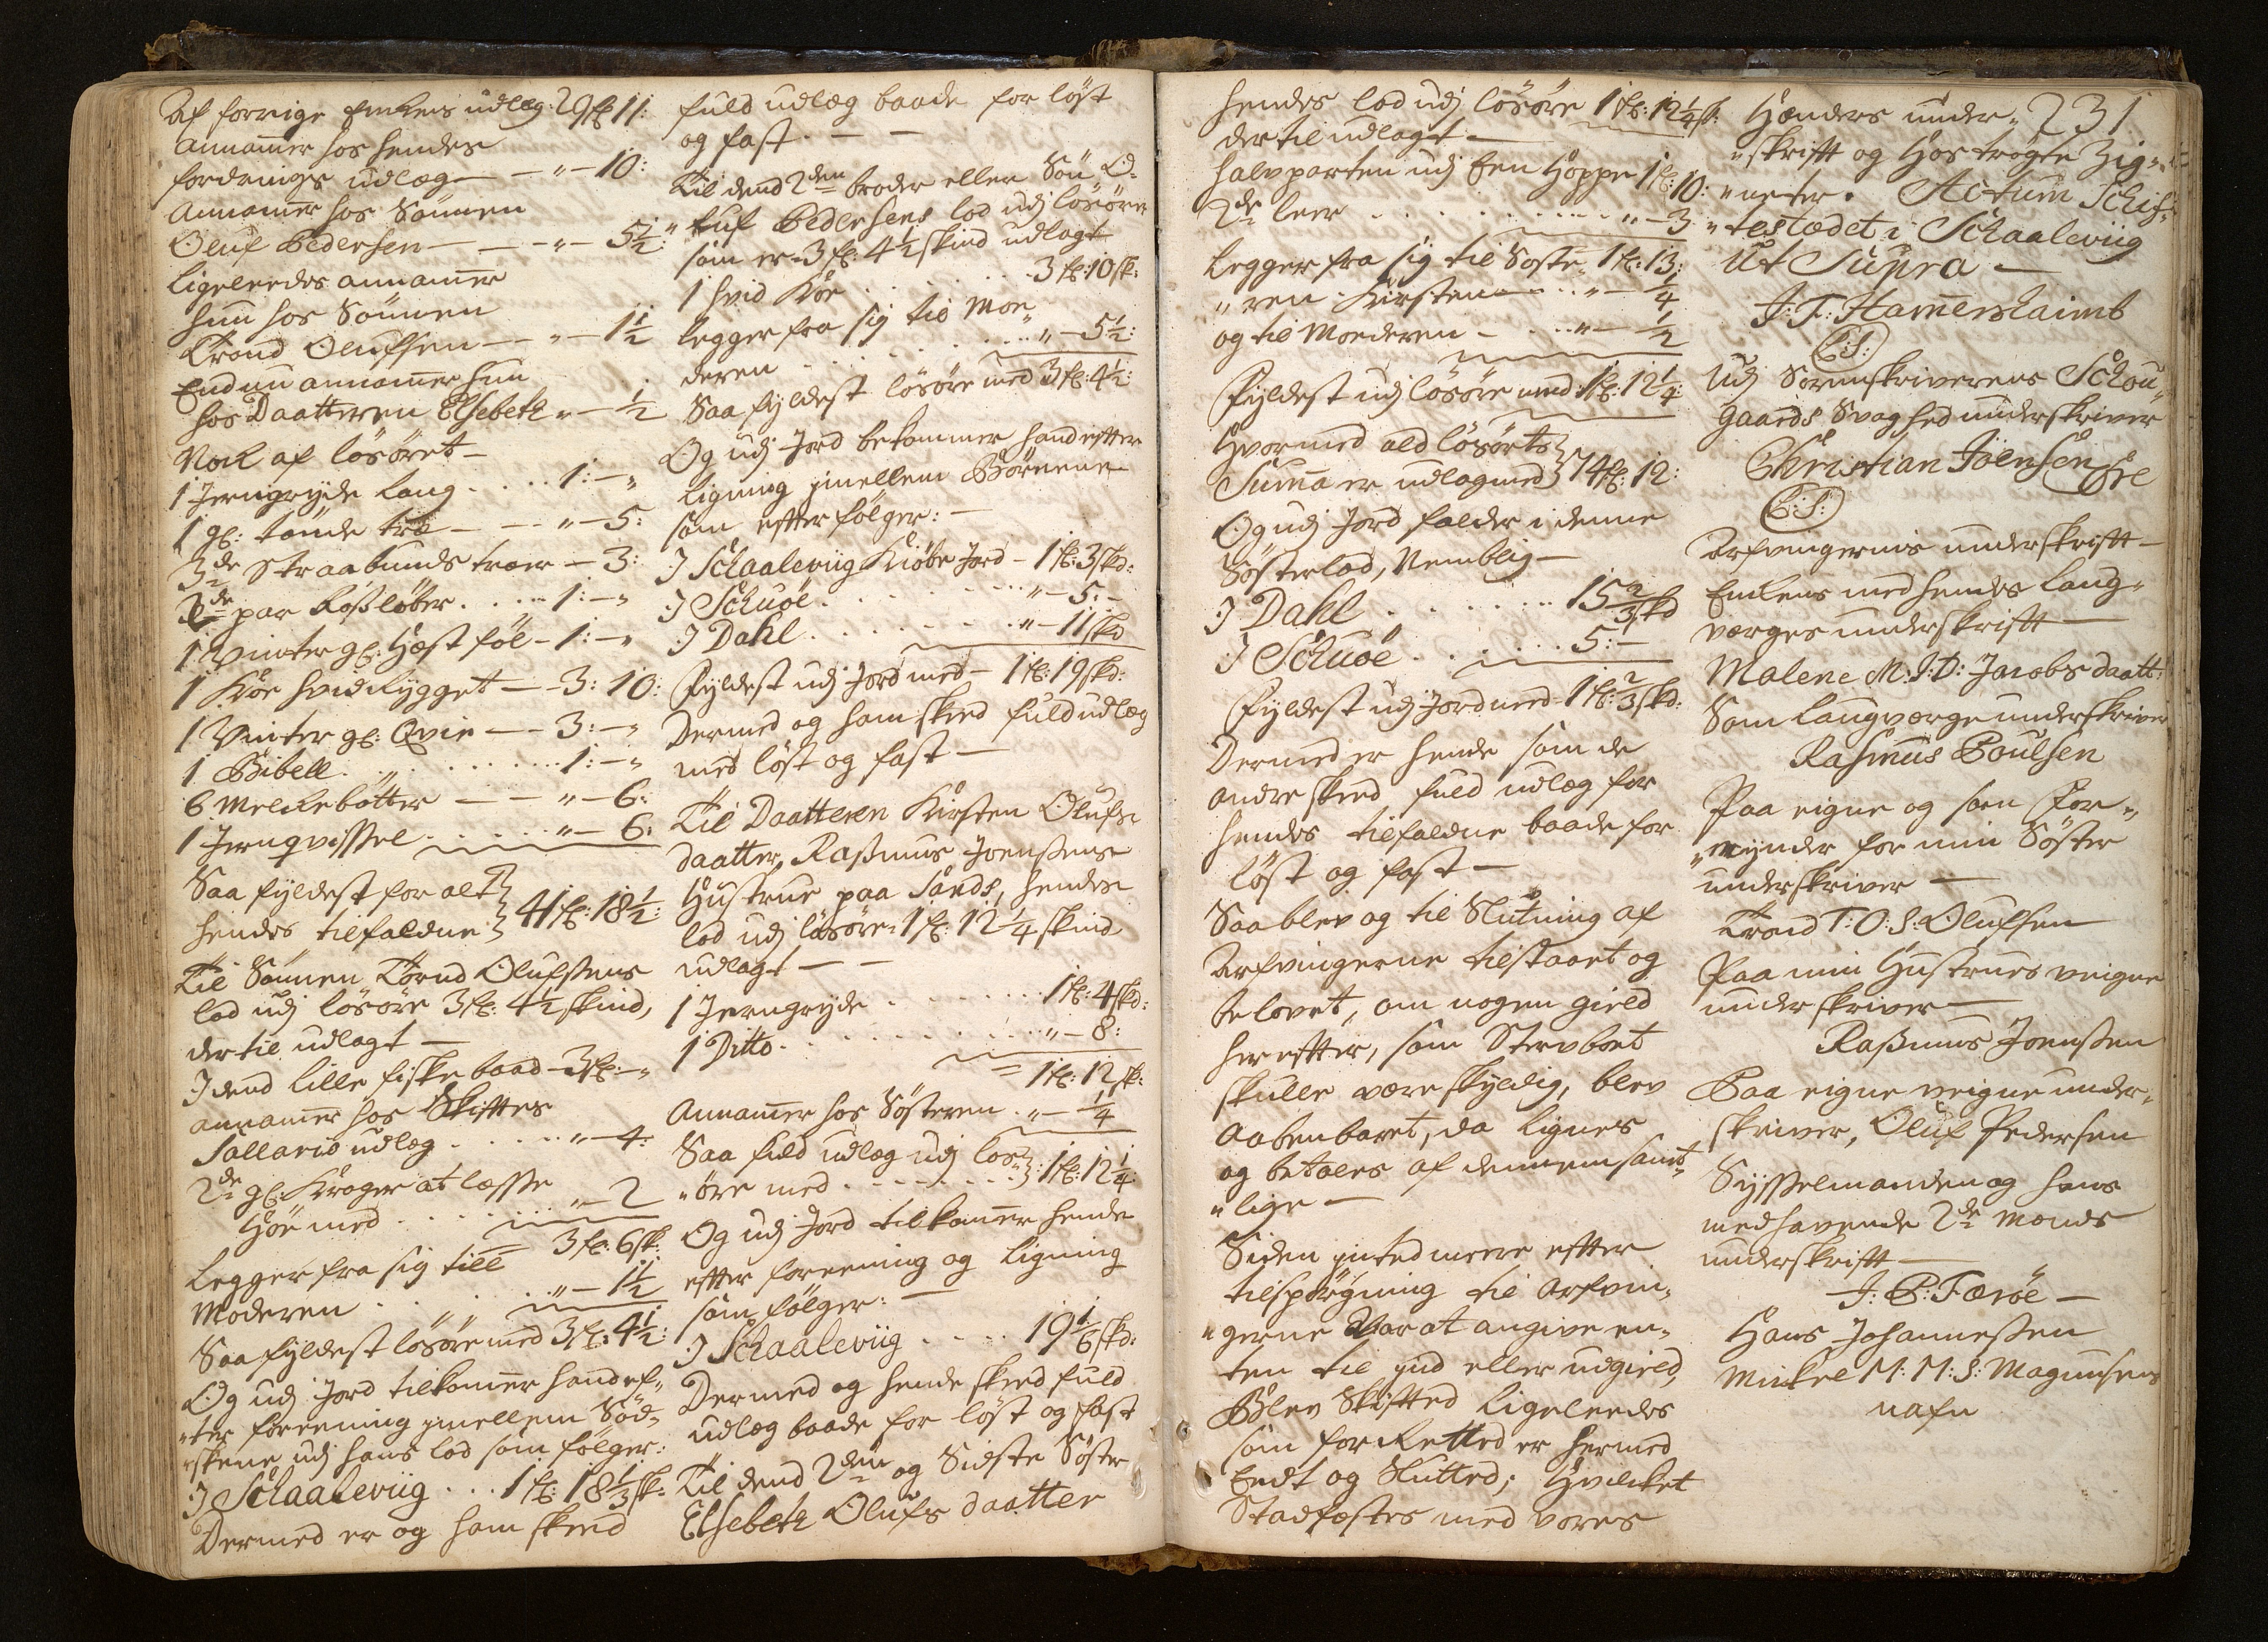 Af forrige Enkens udlæg 29 fl: 11:
Annamer hos hendes
fordrings udlæg — — " — 10:
Annamer hos Sönnen
Oluf Pedersen — — " — 5½:
Ligeleedes annamer
hun hos Sönnen
Trond Olufsen — — " — 1½
End nu annamer hun
hos Daatteren Elsebeth " — ½
Nok af lösöret —
1 Jerngryde Laug . . . . 1: — "
1 gl: tönde træ — — " — 5:
3de Straabunds træer — 3:
2de par Rossløber . . . . 1: — "
1 Vinter gl: Hæst föl — 1: — "
1 Köe hvid Rygget — 3: 10:
1 Vinter gl: Qvie — 3: — "
1 Bibell . . . . . . . 1: — "
6 Melkebötter — — " — 6:
1 Jernqvissel . . . . . " — 6:
Saa fyldest for alt
hendes tilfaldne } 41 fl: 18½:
Til Sönnen Tornd Olufsens
lod udj lösöre 3 fl: 4½ skind,
der til udlagt —
J dend lille fiske baad 3 fl: — "
annamer hos Skiftes
Sallario udlæg . . . . " — 4:
2de gl: Kroger at læsse
Höe med . . . . . " — 2
3 fl: 6 sk:
Legger fra sig till
Moderen . . . . . " — 1½
Saa fyldest lösöre med 3 fl: 4½:
Og udj Jord tilkomer hand ef„
„ter foreening imellem Söd„
„skene udj hans lod som fölger:
J Schaaleviig . . . 1 fl: 18⅓ sk:
Dermed er og ham skeed
fuld udlæg baade for löst
og fast. — —
Til dend 2den broder eller Sön O„
„luf Pedersens lod udj lösöre
som er 3 fl: 4½ skind udlagt
1 hvid Köe . . . . . 3 fl: 10 sk:
legger fra sig til Mo„
deren . . . . . . . " — 5½:
Saa fyldest lösöre med 3 fl: 4½:
Og udj Jord bekommer hand efter
ligning imellem Börnene
som efterfölger: —
J Schaaleviig Kiöbe Jord — 1 fl: 3 skd:
J Schuöe . . . . . . . " — 5: —
J Dahl . . . . . . . " — 11 skd
Fyldest udj Jord med — 1 fl: 19 skd:
Dermed og ham skeed fuld udlæg
med löst og fast —
Til Daatteren Kirsten Olufs
daatter, Rasmus Joensens
Hustrue paa Sands, hendes
lod udj lösöre 1 fl: 12¼ skind
udlagt — —
1 Jerngryde . . . . . . . 1 fl: 4 skd:
1 Ditto . . . . . . . . " — 8:
1 fl: 12 sk:
Annamer hos Sösteren . " — ¼
Saa fuld udlæg udj lös„
„öre med . . . . . . } 1 fl: 12¼:
Og udj Jord tilkomer hende
efter foreening og ligning
som fölger: —
J Schaaleviig . . . . 19⅙ skd:
Dermed og hende skeed fuld
udlæg baade for löst og fast
Til dend 2den og Sidste Söster
Elsebeth Olufs daatter
hendes lod udj lösöre 1 fl: 12¼ sk:
der til udlagt —
halvparten udj Een Hoppe 1 fl: 10:
2de leer . . . . . . . . " — 3
1 fl: 13:
Legger fra sig til Söste„
„ren Kirsten — . . " — ¼
og til Moderen — . . . " — ½
Fyldest udj lösöre med 1 fl: 12¼:
Hvormed ald lösörets
Suma er udlagmed } 74 fl: 12:
Og udj Jord falder i denne
Sösterlod, Nemblig —
J Dahl . . . . . . 15⅔ skd
J Schuöe . . . . . . 5: —
Fyldest udj Jord med 1 fl: ⅔ skd:
Dermed er hende som de
andre skeed fuld udlæg for
hendes tilfaldne baade for
löst og fast —
Saa blev og til Slutning af
Arfvingerne tilstaaet og
belovet, om nogen gield
herefter, som Stervboet
skulle være skyldig, blev
Aabenbaret, da lignes
og betales af dennem samt„
„lige —
Siden inted meere efter
tilspörgning til Arfvin„
„gerne Var at angive en„
ten til ind eller udgield,
Blev Skifted ligeleedes
som forRetted er hermed
Endt og Slutted; Hvilcket
Stadfæstes med vores
231
Hænders under„
„skrift og Hostrøgte Zig„
„neter. Actum Schif„
„testædet i Schaaleviig
Ut Supra —
J: F: Hamershaimb
(L:S:)
Udj Sorenskriverens Schou„
gaards Svaghed underskriver
Christian Jöensen
(L:S:)
Arfvingernis underskrift —
Enkens med hendes laug„
værges underskrift —
Malene M: J: D: Jacobs daatt:
Som laugværge underskriver
Rasmus Poulsen
Paa eigne og som For„
„mynder for min Söster
underskriver —
Trond T: O: S: Olufsen
Paa min Hustrues veigne
underskriver —
Rasmus Joensen
Paa eigne veigne under„
skriver, Oluf Pedersen
Sysselmanden og hans
medhavende 2de Mænds
underskrift —
J: P: Færöe —
Hans Johannesen
Mickel M: M: S: Magnusens
nafn